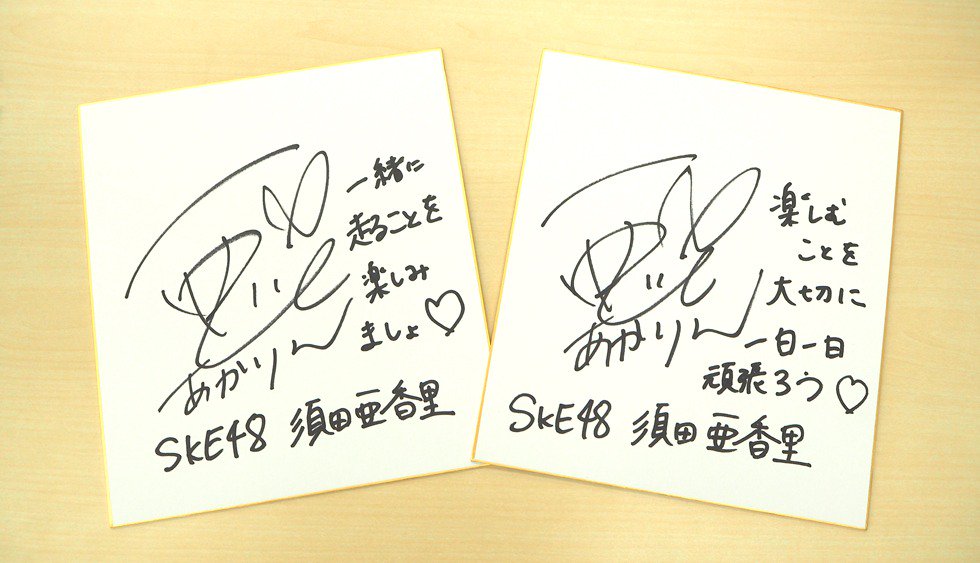 一緒に
走ることを
楽しみ
ましょ♡
あかりん
SKE48 須田亜香里
楽しむ
ことを
大切に
一日一日
頑張ろう♡
あかりん
SKE48 須田亜香里